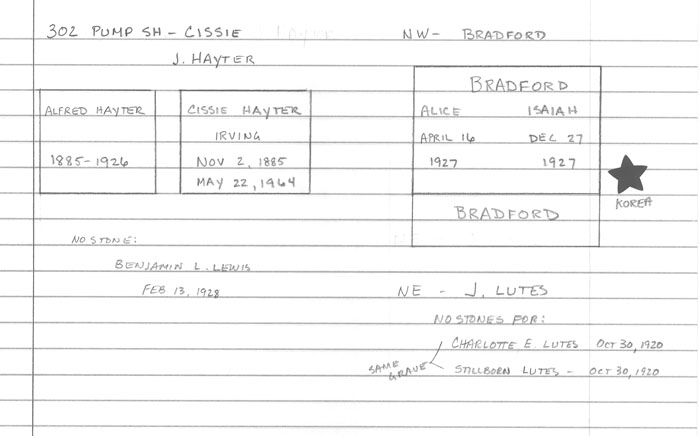 302 PUMP SH - CISSIE
J. HAYTER
ALFRED HAYTER
1885-1926
CISSIE HAYTER
IRVING
NOV 2, 1885
MAY 22, 1964
NO STONE:
BENJAMIN L. LEWIS
FEB 13, 1928
NW- BRADFORD
BRADFORD
ALICE ISAIAH
APRIL 16 DEC 27
1927 1927
BRADFORD
KOREA
NE - J. LUTES
NO STONES FOR:
CHARLOTTE E. LUTES OCT 30, 1920
SAME GRAVE
STILLBORN LUTES - OCT 30, 1920